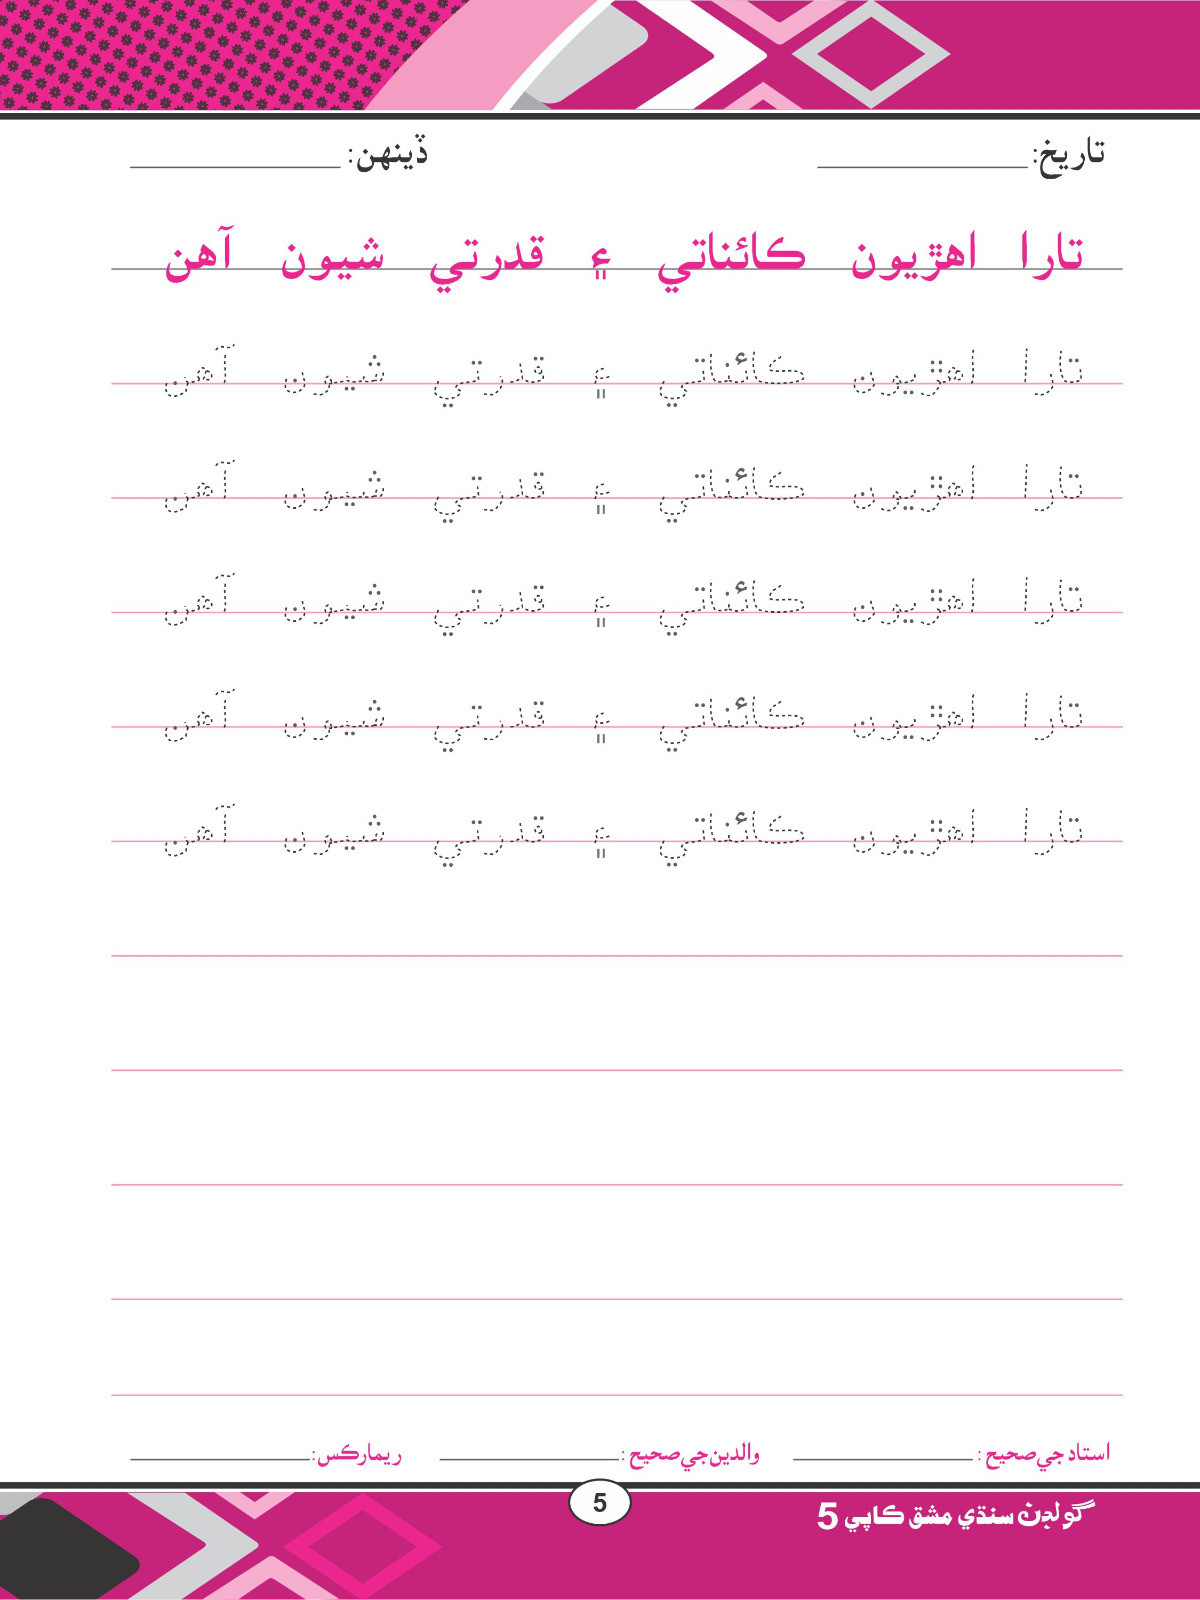 تاريخ: ڏينهن:
تارا اهڙيون ڪائناتي ۽ قدرتي شيون آهن
تارا اهڙيون ڪائناتي ۽ قدرتي شيون آهن
تارا اهڙيون ڪائناتي ۽ قدرتي شيون آهن
تارا اهڙيون ڪائناتي ۽ قدرتي شيون آهن
تارا اهڙيون ڪائناتي ۽ قدرتي شيون آهن
تارا اهڙيون ڪائناتي ۽ قدرتي شيون آهن
استاد جي صحيح: والدين جي صحيح: ريمارڪس:
5
گولڊن سنڌي مشق ڪاپي 5